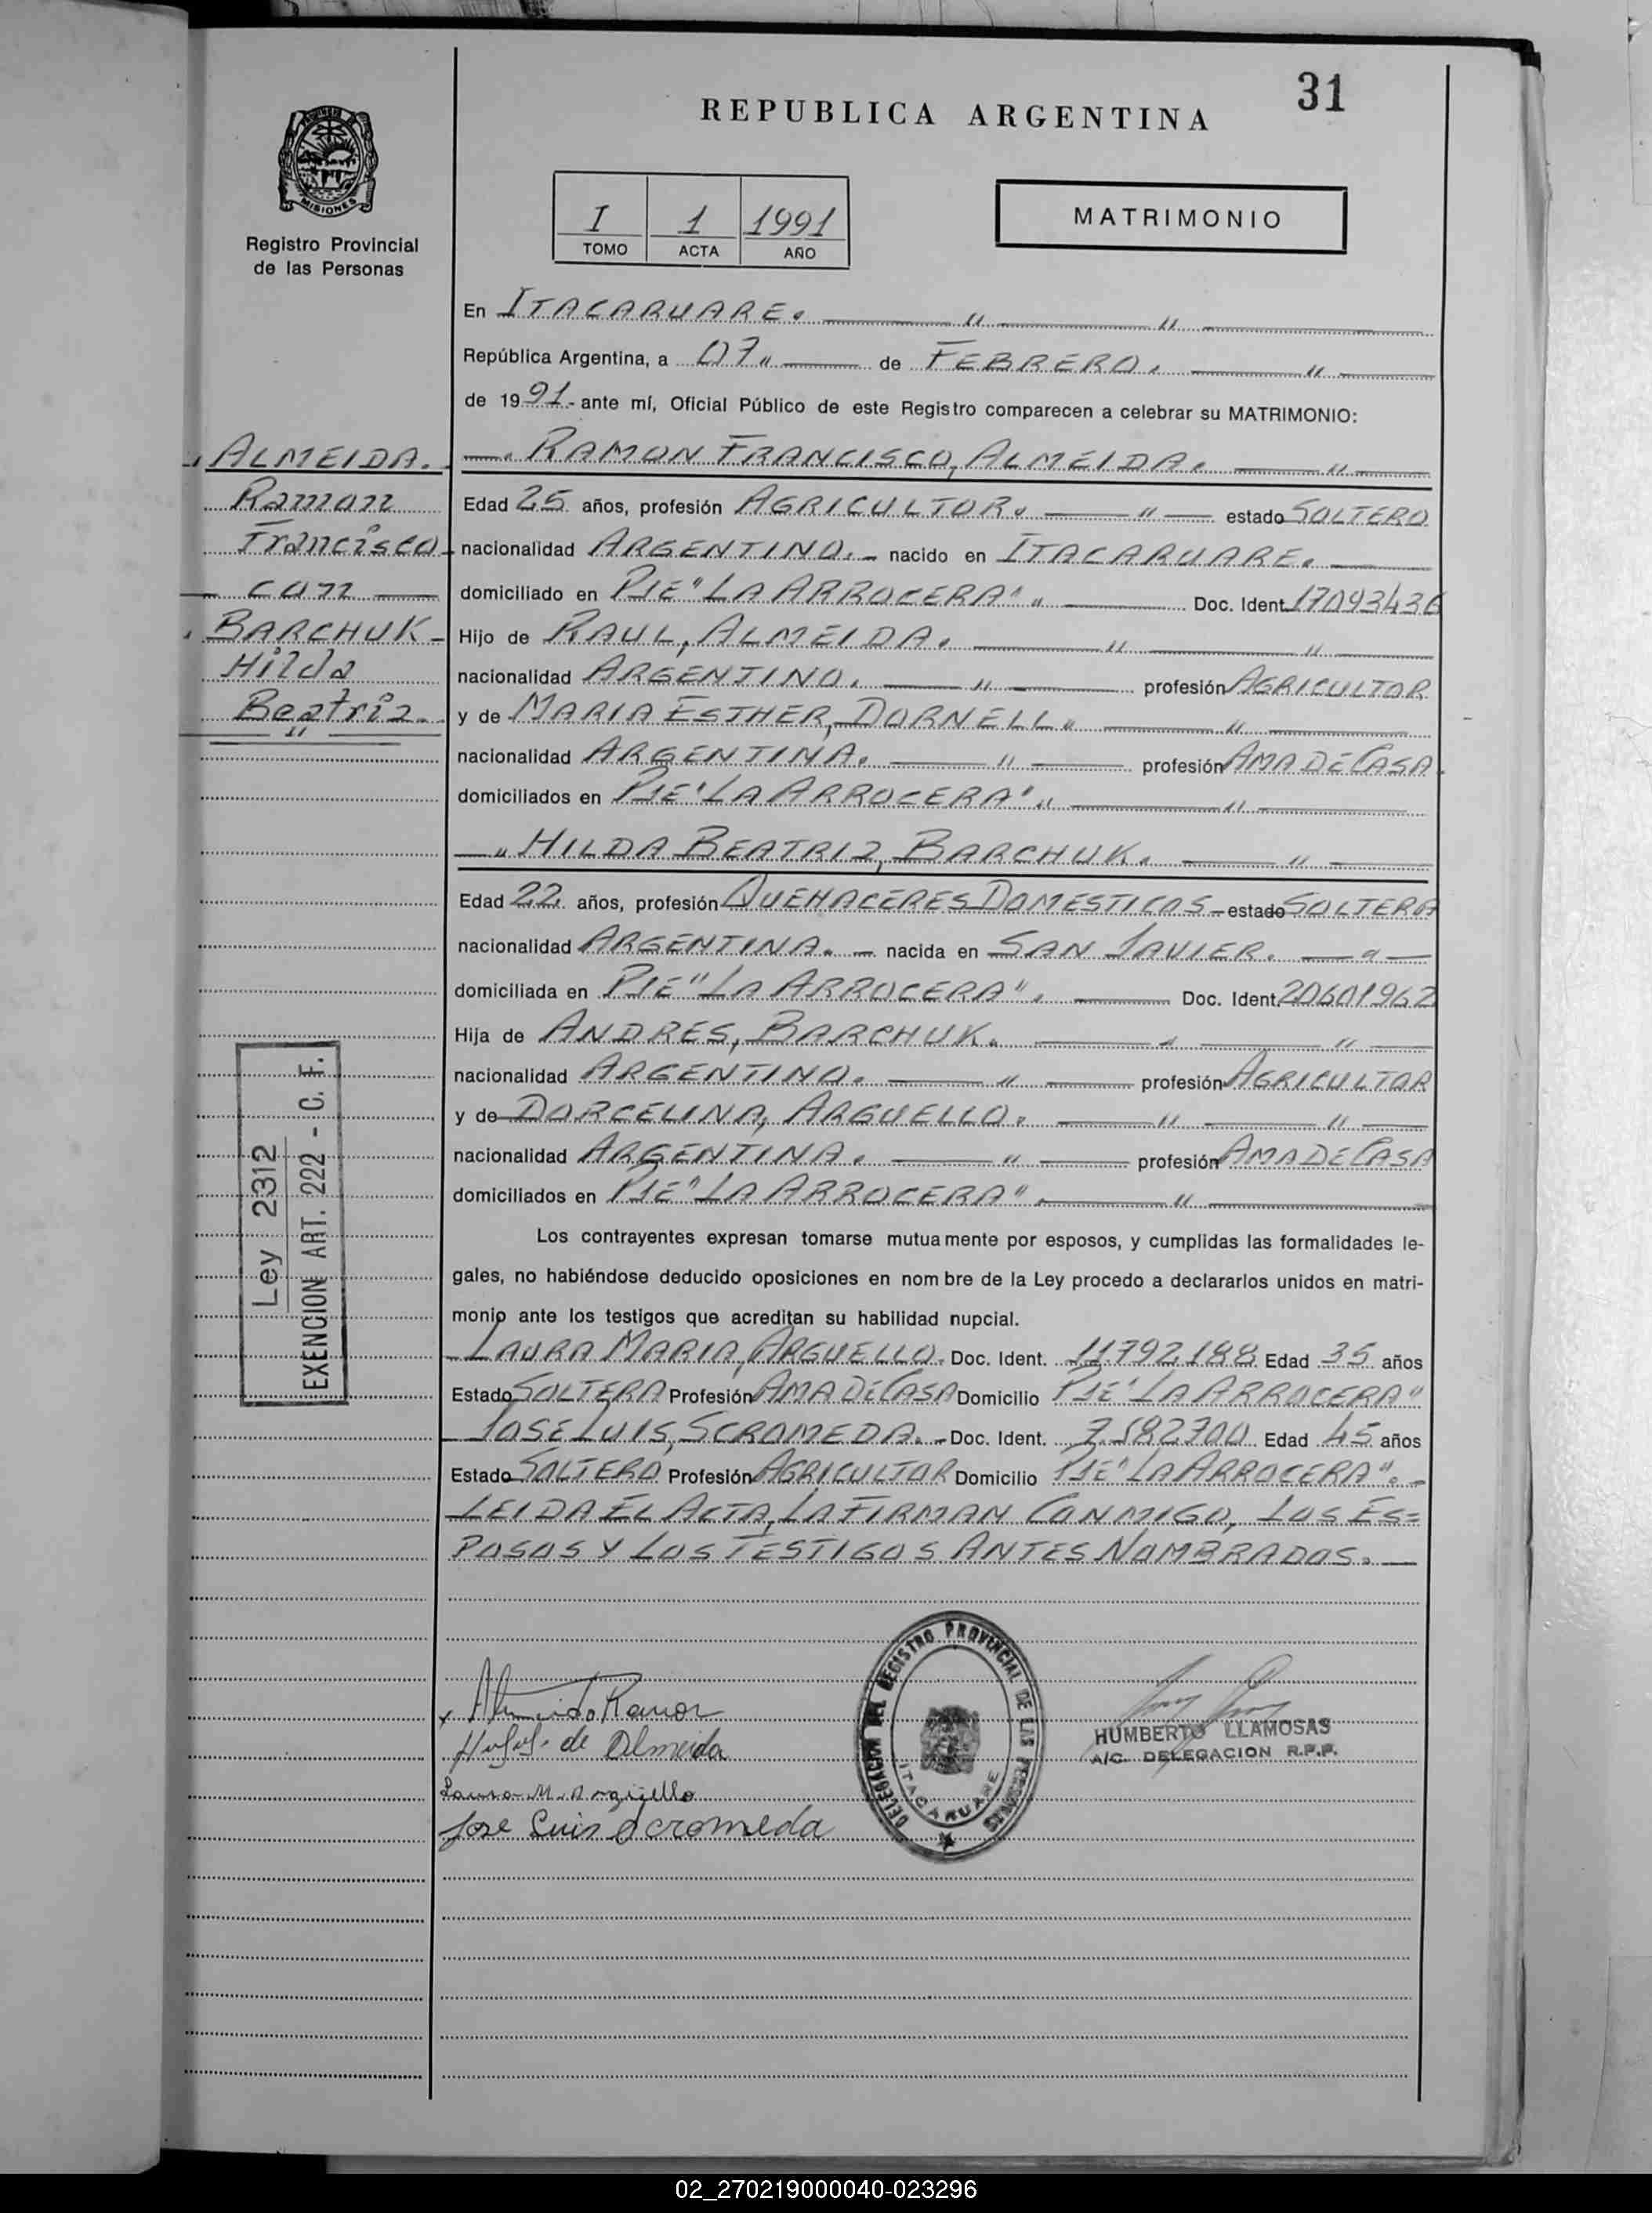 31
REPUBLICA ARGENTINA
MISIONES
Registro Provincial
de las Personas
I 1 1991
TOMO ACTA AÑO
MATRIMONIO
En ITACARUARE.
República Argentina, a 07 de FEBRERO.
de 1991.- ante mí, Oficial Público de este Registro comparecen a celebrar su MATRIMONIO:
ALMEIDA.
Ramon
Francisco
con
BARCHUK
Hilda
Beatriz
RAMON FRANCISCO, ALMEIDA.
Edad 25 años, profesión AGRICULTOR. estado SOLTERO
nacionalidad ARGENTINO. nacido en ITACARUARE.
domiciliado en PJE "LA ARROCERA" Doc. Ident. 17093436
Hijo de RAUL, ALMEIDA.
nacionalidad ARGENTINO. profesión AGRICULTOR
y de MARIA ESTHER, DORNELL
nacionalidad ARGENTINA. profesión AMA DE CASA
domiciliados en PJE "LA ARROCERA"
HILDA BEATRIZ, BARCHUK.
Edad 22 años, profesión QUEHACERES DOMESTICOS - estado SOLTERA
nacionalidad ARGENTINA. nacida en SAN JAVIER.
domiciliada en PJE "LA ARROCERA". Doc. Ident. 20601962
Hija de ANDRES, BARCHUK.
nacionalidad ARGENTINO. profesión AGRICULTOR
y de DORCELINA, ARGUELLO.
nacionalidad ARGENTINA. profesión AMA DE CASA
domiciliados en PJE "LA ARROCERA".
Los contrayentes expresan tomarse mutuamente por esposos, y cumplidas las formalidades le-
gales, no habiéndose deducido oposiciones en nombre de la Ley procedo a declararlos unidos en matri-
monio ante los testigos que acreditan su habilidad nupcial.
LAURA MARIA, ARGUELLO. Doc. Ident. 11792188 Edad 35 años
Estado SOLTERA Profesión AMA DE CASA Domicilio PJE "LA ARROCERA"
JOSE LUIS, SCROMEDA. - Doc. Ident. 7.582700 Edad 45 años
Estado SOLTERO Profesión AGRICULTOR Domicilio PJE "LA ARROCERA".-
LEIDA EL ACTA, LA FIRMAN CONMIGO, LOS ES=
POSOS Y LOS TESTIGOS ANTES NOMBRADOS.
Ley 2312
EXENCION ART. 222 - C. F.
Almeida Ramon
de Almeida
Laura M. Argüello
Jose Luis Scromeda
DELEGACION DEL REGISTRO PROVINCIAL DE LAS PERSONAS
ITACARUARE
HUMBERTO LLAMOSAS
A/C. DELEGACION R.P.P.
02_270219000040-023296